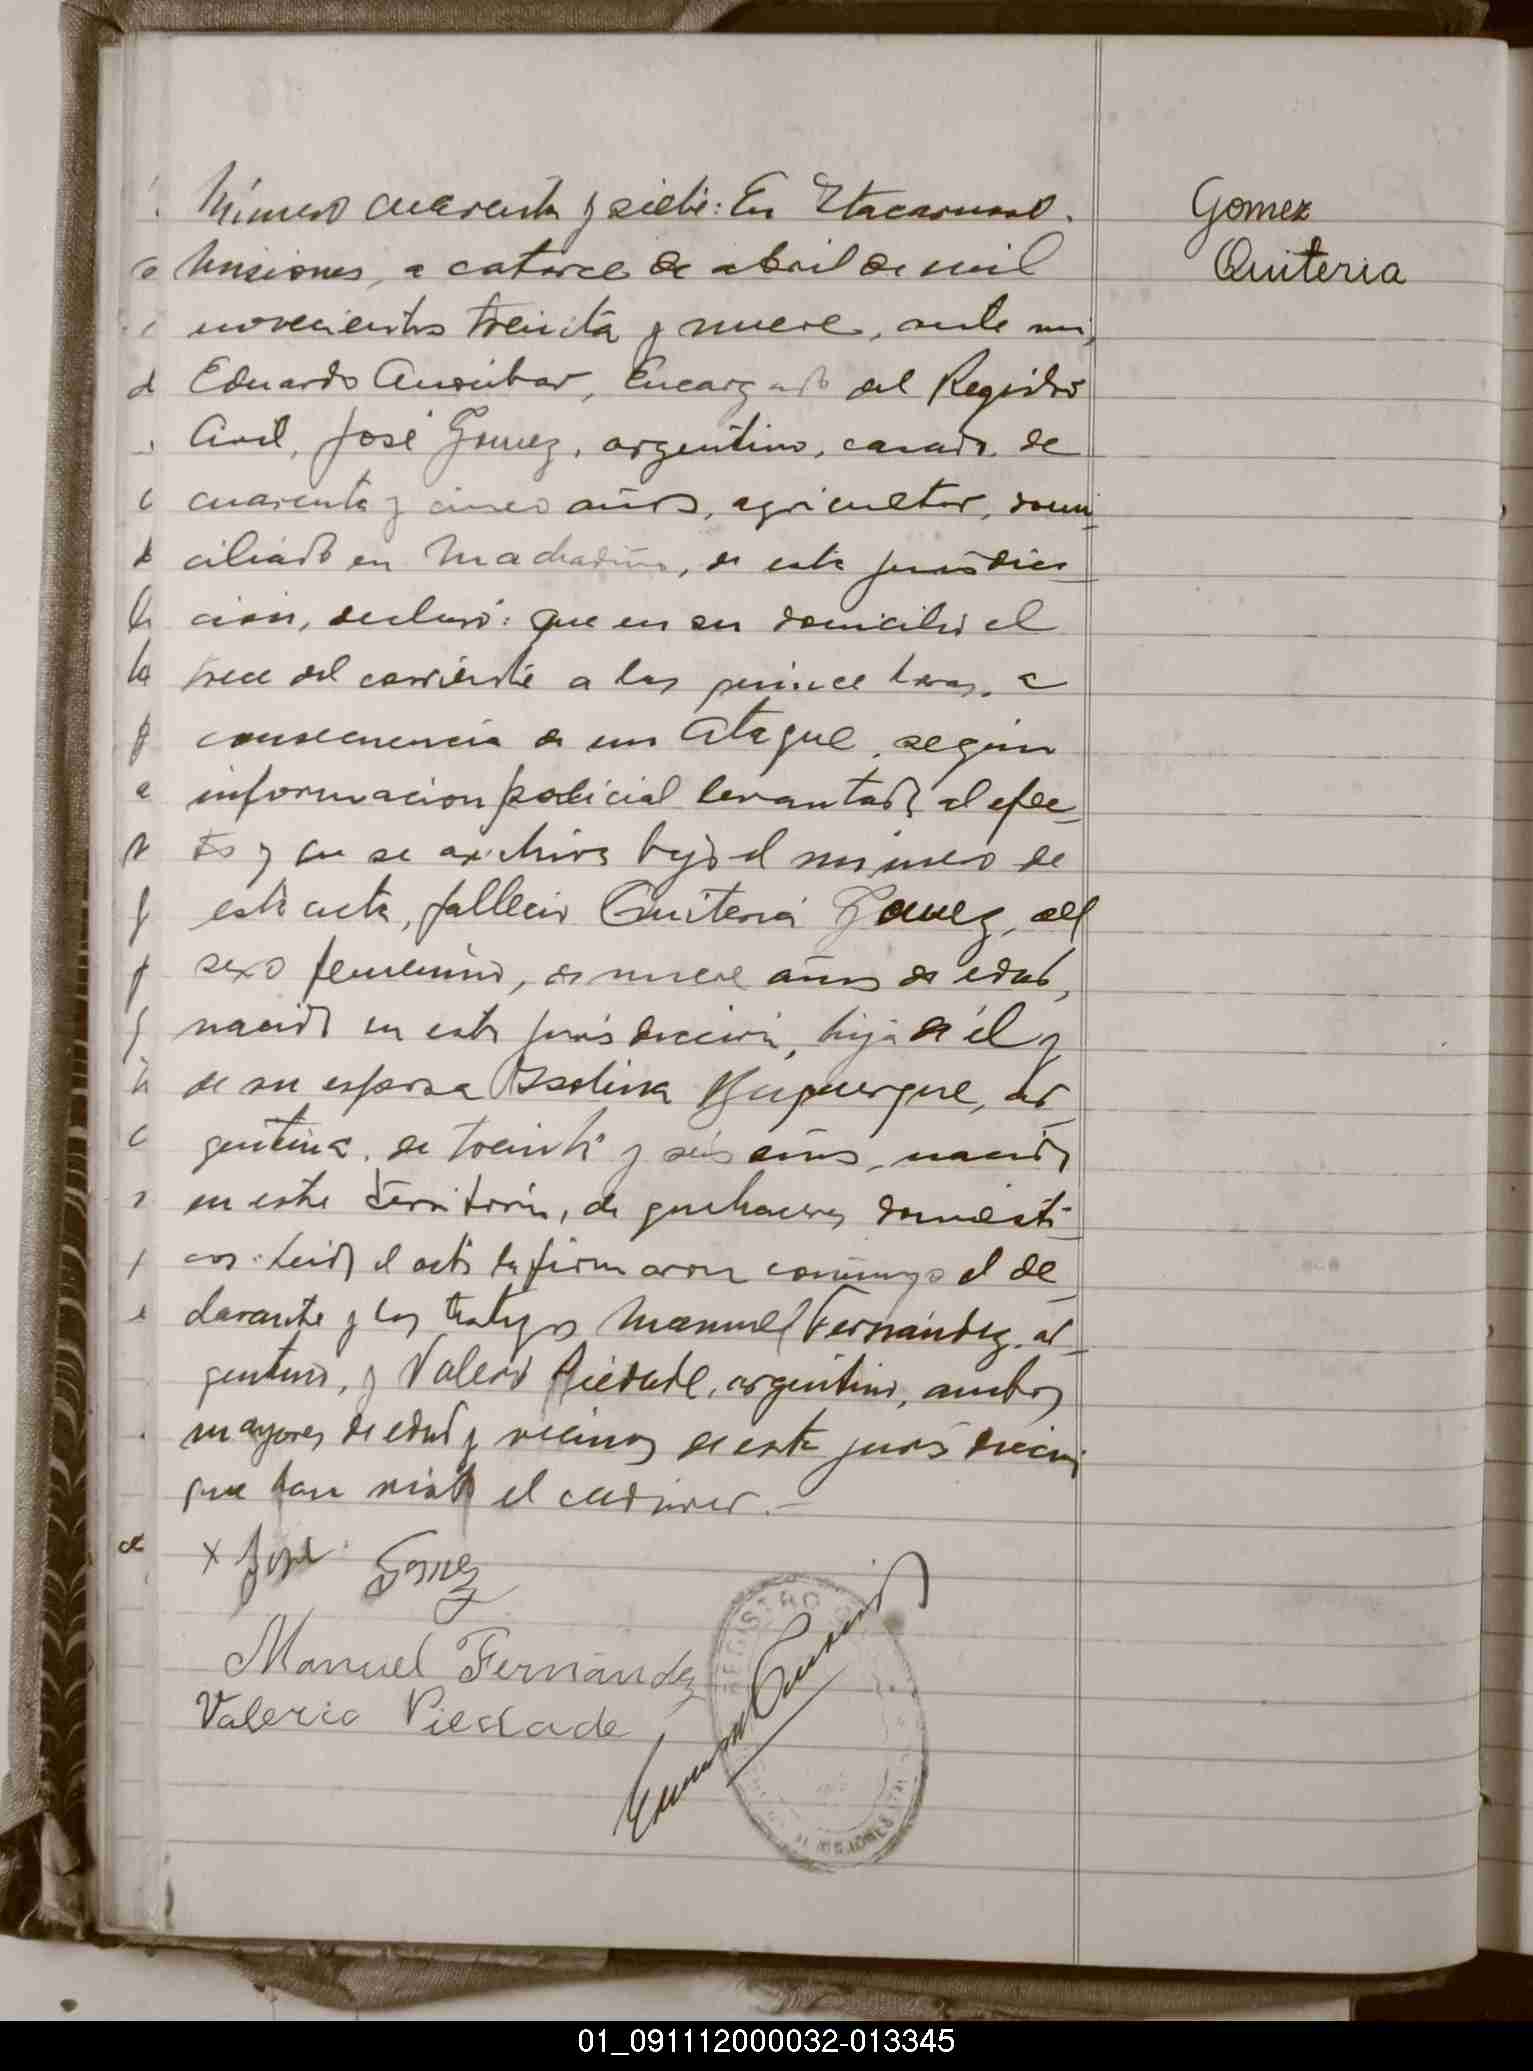 Número cuarenta y siete: En Itacaruaré.
Misiones, a catorce de abril de mil
novecientos treinta y nueve, ante mi,
Eduardo Encargado del Registro
Civil, José Gomez, argentino, casado, de
cuarenta y cinco años, agricultor, domi
ciliado en de esta jurisdic-
ción, declaró: que en su domicilio el
trece del corriente a las quince horas, a
consecuencia de un ataque, según
informacion policial levantada al efec-
to y que se archiva bajo el número de
esta acta, falleció Quiteria Gomez, del
sexo femenino, de nueve años de edad,
nacida en esta jurisdicción, hija de él y
de su esposa Isolina ar-
gentina, de treinta y seis años, nacida
en este territorio, de quehaceres domesti-
cos. Leida el acta la firmaron conmigo el de-
clarante y los testigos Manuel Fernández, ar-
gentino, y Valerio Piedade, argentino, ambos
mayores de edad y vecinos de esta jurisdiccion
que han visto el cadaver.-
x José Gomez
Manuel Fernández
Valerio Piedade
REGISTRO
MISIONES
Gomez
Quiteria
01_091112000032-013345